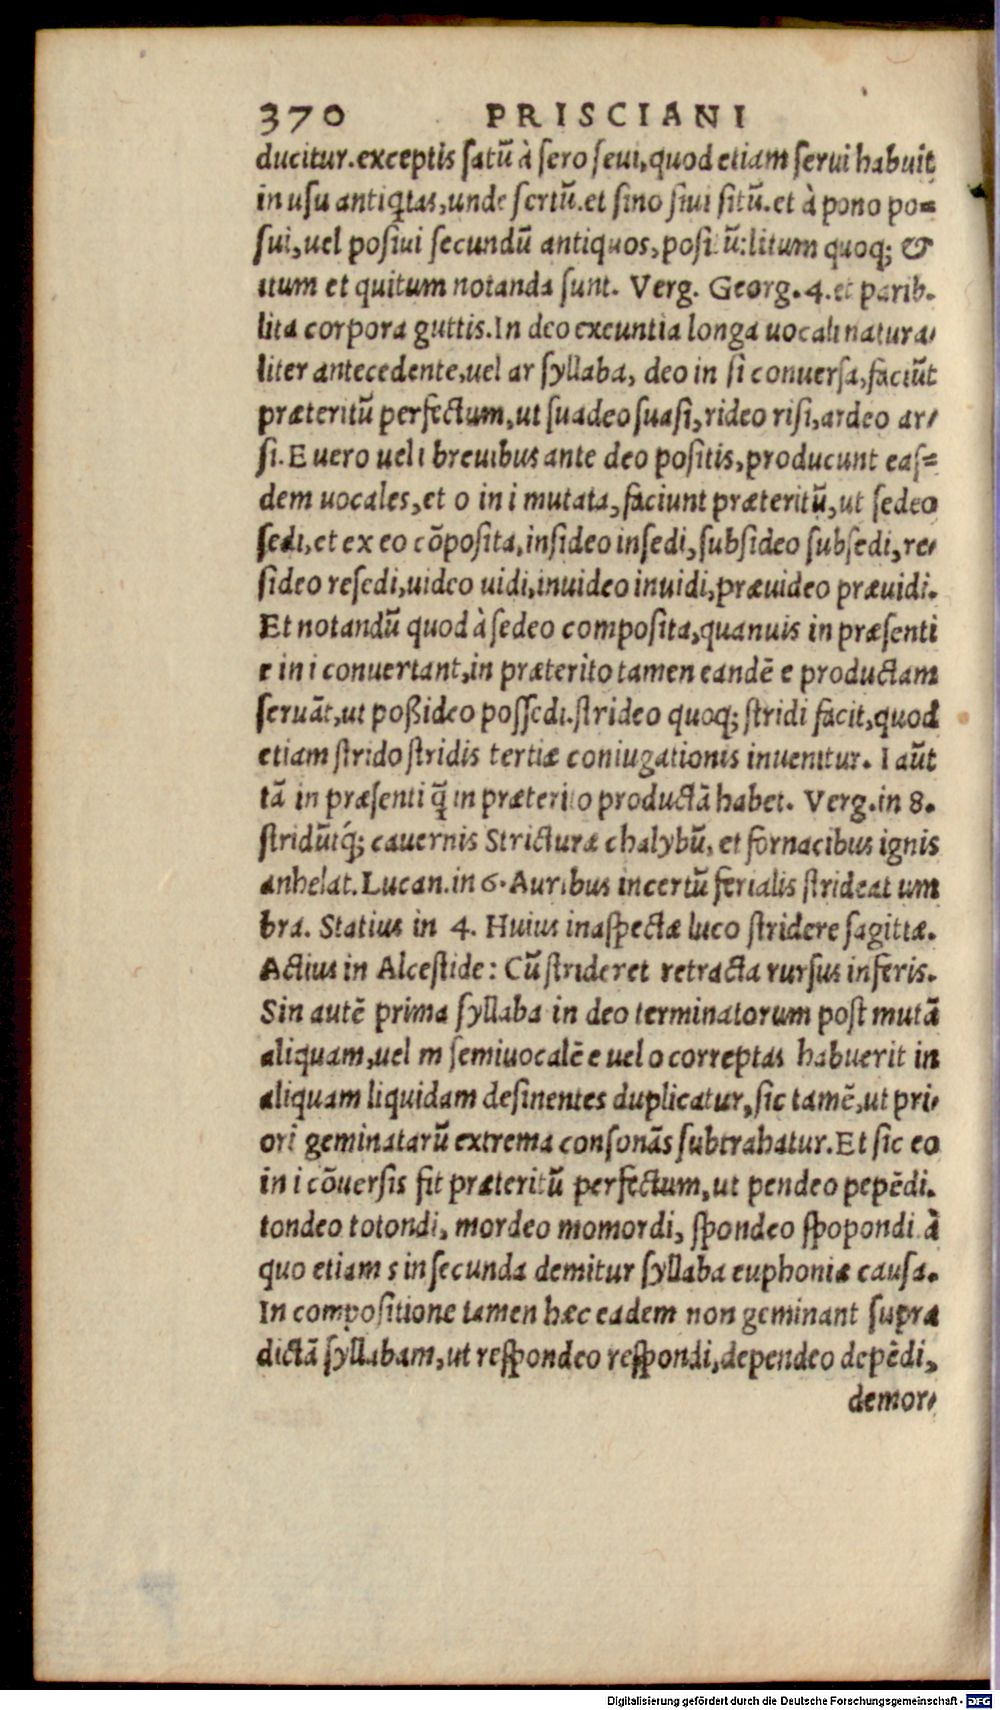 370 PRISCIANI
ducitur.exceptis ſatũ à ſero ſeui,quod etiam ſerui habuit
in uſu antiq̃tas,unde ſertũ.et ſino ſiui ſitũ.et à pono po=
ſui,uel poſiui ſecundũ antiquos,poſitũ:litum quoq; &
itum et quitum notanda ſunt. Verg. Georg.4.et parib.
lita corpora guttis.In deo exeuntia longa uocali natura/
liter antecedente,uel ar ſyllaba, deo in ſi conuerſa,faciũt
præteritũ perfectum,ut ſuadeo ſuaſi,rideo riſi,ardeo ar/
ſi.E uero uel i breuibus ante deo poſitis,producunt eaſ=
dem uocales,et o in i mutata,faciunt præteritũ,ut ſedeo
ſedi,et ex eo cõpoſita,inſideo inſedi,ſubſideo ſubſedi,re/
ſideo reſedi,uideo uidi,inuideo inuidi,præuideo præuidi.
Et notandũ quod à ſedeo compoſita,quanuis in præſenti
e in i conuertant,in præterito tamen eandẽ e productam
ſeruãt,ut poßideo poſſedi.ſtrideo quoq; ſtridi facit,quod
etiam ſtrido ſtridis tertiæ coniugationis inuenitur. I aũt
tã in præſenti q̃ in præterito productã habet. Verg.in 8.
ſtridũtq́; cauernis Stricturæ chalybũ, et fornacibus ignis
anhelat.Lucan.in 6.Auribus incertũ feralis ſtrideat um
bra. Statius in 4. Huius inaſpectæ luco ſtridere ſagittæ.
Actius in Alceſtide: Cũ ſtrideret retracta rurſus inferis.
Sin autẽ prima ſyllaba in deo terminatorum poſt mutã
aliquam,uel m ſemiuocalẽ e uel o correptas habuerit in
aliquam liquidam deſinentes duplicatur,ſic tamẽ,ut pri/
ori geminatarũ extrema conſonãs ſubtrahatur.Et ſic eo
in i cõuerſis fit præteritũ perfectum,ut pendeo pepẽdi.
tondeo totondi, mordeo momordi, ſpondeo ſpopondi à
quo etiam s in ſecunda demitur ſyllaba euphoniæ cauſa.
In compoſitione tamen hæc eadem non geminant ſupra
dictã ſyllabam,ut reſpondeo reſpondi,dependeo depẽdi,
demor/
Digitalisierung gefördert durch die Deutsche Forschungsgemeinschaft - DFG